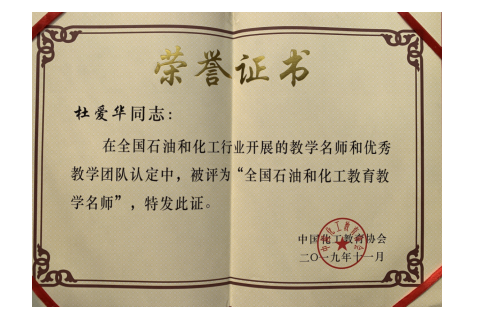 荣誉证书
杜爱华同志：
在全国石油和化工行业开展的教学名师和优秀
教学团队认定中，被评为“全国石油和化工教育教
学名师”，特发此证。
中国化工教育协会
二〇一九年十一月